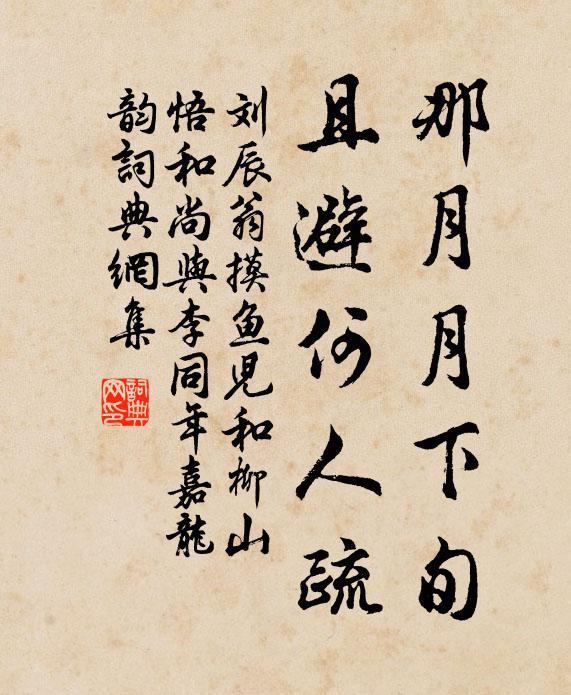 那月月下旬
且避何人疏
刘辰翁摸鱼児和柳山
悟和尚與李同年嘉龍
韵詞典網集
詞典
网印